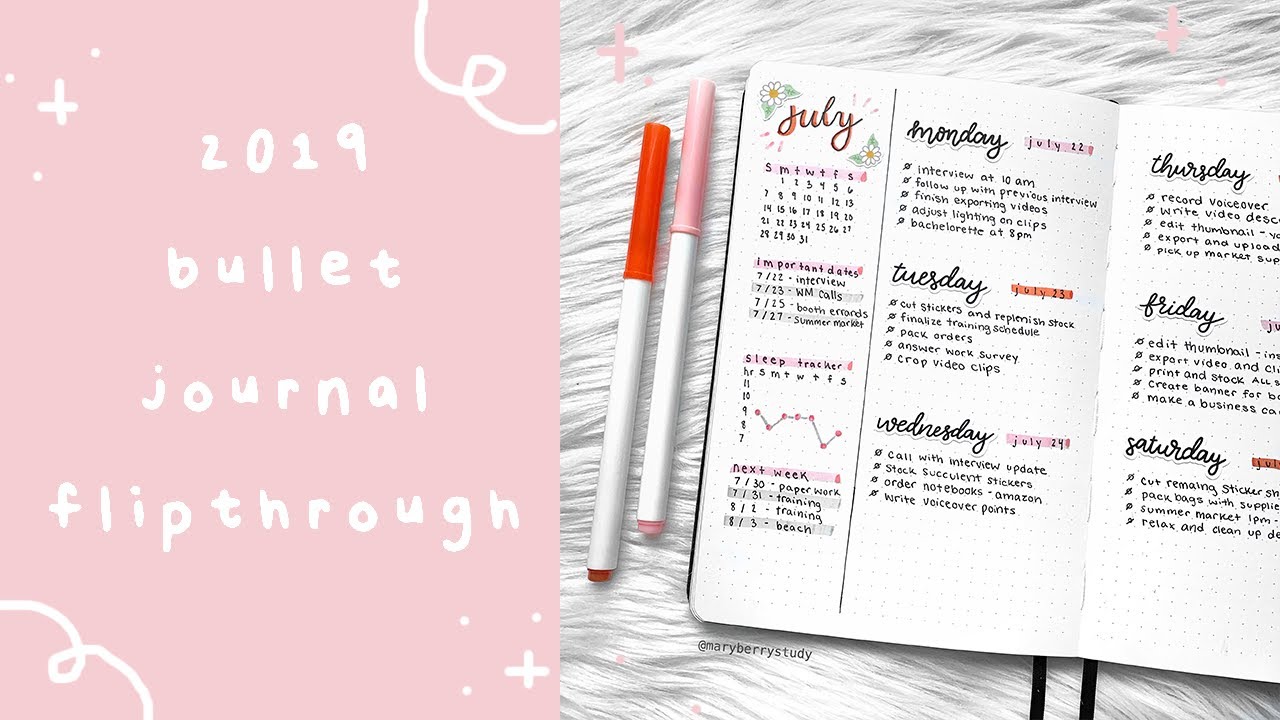 2019
bullet
journal
flipthrough
july
s m t w t f s
1 2 3 4 5 6
7 8 9 10 11 12 13
14 15 16 17 18 19 20
21 22 23 24 25 26 27
28 29 30 31
important dates
7/22 - interview
7/23 - WM calls
7/25 - booth errands
7/27 - summer market
sleep tracker
hr s m t w t f s
11
10
9
8
7
next week
7/30 - paper work
7/31 - training
8/2 - training
8/3 - beach
monday july 22
interview at 10 am
follow up with previous interview
finish exporting videos
adjust lighting on clips
bachelorette at 8pm
tuesday july 23
cut stickers and replenish stock
finalize training schedule
pack orders
answer work survey
crop video clips
wednesday july 24
call with interview update
stock succulent stickers
order notebooks - amazon
write voiceover points
thursday
record voiceover
write video
edit thumbnail -
export and upload
pick up market
friday
edit thumbnail -
export video and
print and stock ALL
create banner for
make a business
saturday
cut remaing sticker
pack bags with
summer market 1pm -
relax and clean up
@maryberrystudy